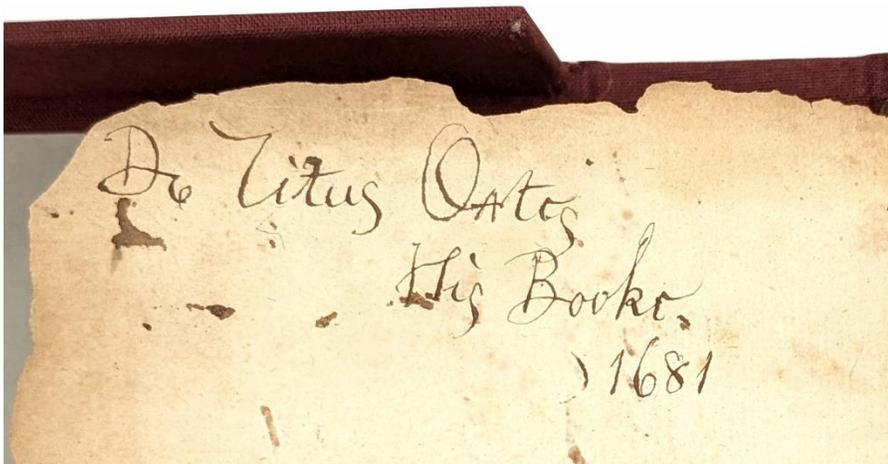 Dr Titus Oates
His Booke.
1681